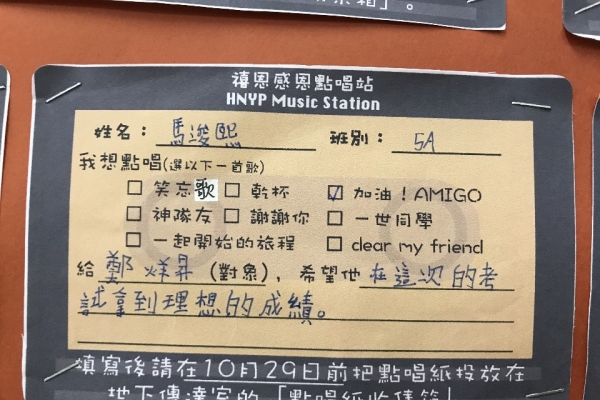 禧恩感恩點唱站
HNYP Music Station
姓名：馬浚熙 班別：5A
我想點唱(選以下一首歌)
□ 笑忘歌 □ 乾杯 ☑ 加油！AMIGO
□ 神隊友 □ 謝謝你 □ 一世同學
□ 一起開始的旅程 □ dear my friend
給 鄭烊昇 (對象)，希望他在這次的考
試拿到理想的成績。
填寫後請在10月29日前把點唱紙投放在
地下傳達室的「點唱紙收集箱」